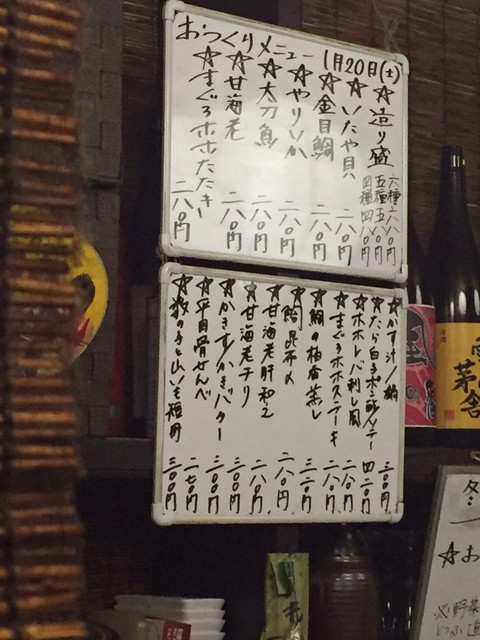 おつくりメニュー 1月20日(土)
☆造り盛 六種 六八〇円
五種 五八〇円
四種 四八〇円
☆いたや貝 二八〇円
☆金目鯛 二八〇円
☆やりいか 二八〇円
☆太刀魚 二八〇円
☆甘海老 二八〇円
☆まぐろホホたたき 二八〇円
☆かす汁/
☆たら白子ポン酢/ソテー 四二〇円
☆ホホレバ刺し風 二八〇円
☆まぐろホホステーキ 二八〇円
☆鯛の柚香蒸し
昆布〆 二八〇円
☆甘海老肝和え 二八〇円
☆甘海老チリ
☆かきす/かきバター
☆平目骨せんべ 二七〇円
☆数の子と山いも短冊
茅舎
冬
☆お
野菜